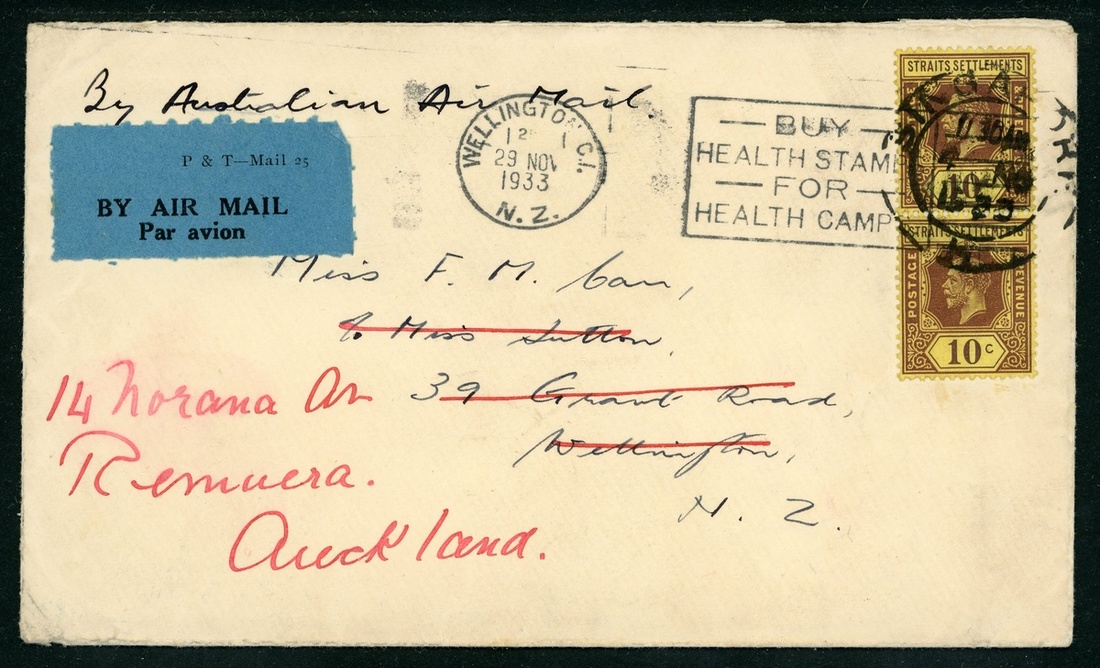 By Australian Air Mail.
P & T—Mail 25
BY AIR MAIL
Par avion
WELLINGTON C.I.
29 NOV
1933
N. Z.
BUY
HEALTH STAMP
FOR
HEALTH CAMP
STRAITS SETTLEMENTS
10
STRAITS SETTLEMENTS
POSTAGE
REVENUE
10 C
Miss F. M. Carr,
℅ Miss Sutton,
39 Grant Road,
Wellington,
N. Z.
14 Norana Av
Remuera.
Auckland.